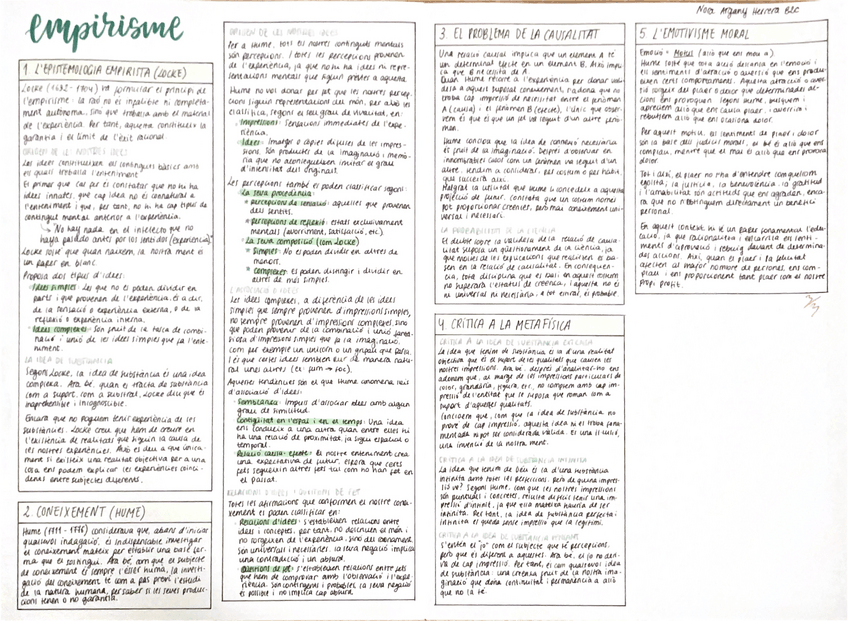 empirisme
Nora Argany Herrera B2C
1. L'EPISTEMOLOGIA EMPIRISTA (LOCKE)
Locke (1632 - 1704) va formular el principi de
l'empirisme: la raó no és infal·lible ni completa-
ment autònoma, sinó que treballa amb el material
de l'experiència. Per tant, aquesta constitueix la
garantia i el límit de l'ús racional.
ORIGEN DE LES NOSTRES IDEES
Les idees constitueixen els continguts bàsics amb
els quals treballa l'enteniment.
El primer que cal és constatar que no hi ha
idees innates, que cap idea no és connatural a
l'enteniment i que, per tant, no hi ha cap tipus de
contingut mental anterior a l'experiència.
"No hay nada en el intelecto que no
haya pasado antes por los sentidos (experiencia)"
Locke sosté que quan naixem, la nostra ment és
un paper en blanc.
Proposa dos tipus d'idees:
· Idees simples: Les que no es poden dividir en
parts i que provenen de l'experiència, és a dir,
de la sensació o experiència externa, o de la
reflexió o experiència interna.
· Idees complexes: Són fruit de la tasca de combi-
nació i unió de les idees simples que fa l'ente-
niment.
LA IDEA DE SUBSTÀNCIA
Segons Locke, la idea de substància és una idea
complexa. Ara bé, quan es tracta de substància
com a suport, com a substrat, Locke diu que és
inaprehensible i incognoscible.
Encara que no puguem tenir experiència de les
substàncies, Locke creu que hem de creure en
l'existència de realitats que siguin la causa de
les nostres experiències. Això és degut a que única-
ment si existeix una realitat objectiva per a una
cosa ens podem explicar les experiències coinci-
dents entre subjectes diferents.
2. CONEIXEMENT (HUME)
Hume (1711 - 1776) considerava que, abans d'iniciar
qualsevol indagació, és indispensable investigar
el coneixement mateix per establir una base fer-
ma que el sostingui. Ara bé, com que el subjecte
de coneixement és sempre l'ésser humà, la investi-
gació del coneixement té com a pas previ l'estudi
de la natura humana, per saber si les seves produc-
cions tenen o no garantia.
ORIGEN DE LES NOSTRES IDEES
Per a Hume, tots els nostres continguts mentals
són percepcions. I totes les percepcions provenen
de l'experiència, ja que no hi ha idees ni repre-
sentacions mentals que siguin prèvies a aquesta.
Hume no vol donar per fet que les nostres per-
cepcions siguin representacions del món, per això les
classifica, segons el seu grau de vivacitat, en:
· Impressions: Sensacions immediates de l'expe-
riència.
· Idees: Imatges o còpies dèbils de les impres-
sions. Són producte de la imaginació i memò-
ria que no aconsegueixen imitar el grau
d'intensitat dels originals.
Les percepcions també es poden classificar segons:
· La seva procedència:
* percepcions de sensació: aquelles que provenen
dels sentits.
* percepcions de reflexió: estats exclusivament
mentals (avorriment, satisfacció, etc.)
· La seva composició (com Locke)
* Simples: No es poden dividir en altres de
menors.
* Complexes: es poden distingir i dividir en
altres de més simples.
L'ASSOCIACIÓ D'IDEES
Les idees complexes, a diferència de les idees
simples que sempre provenen d'impressions simples,
no sempre provenen d'impressions complexes, sinó
que poden provenir de la combinació i unió fanta-
siosa d'impressions simples que fa la imaginació,
com per exemple un unicorn o un
I és que certes idees semblen dur de manera natu-
ral unes altres (ex: fum → foc).
Aquestes tendències són el que Hume anomena lleis
d'associació d'idees:
· Semblança: Impuls d'associar idees amb algun
grau de similitud.
· Contigüitat en l'espai i en el temps: Una idea
ens condueix a una altra quan entre elles hi
ha una relació de proximitat, ja sigui espacial o
temporal.
· Relació causa-efecte: El nostre enteniment crea
una expectativa de futur. Espera que certs
fets segueixin altres fets tal com no han fet en
el passat.
RELACIONS D'IDEES I QÜESTIONS DE FET
Totes les afirmacions que conformen el nostre conei-
xement es poden classificar en:
· Relacions d'idees: s'estableixen relacions entre
idees i conceptes, per tant, no descriuen el món i
no sorgeixen de l'experiència, sinó del raonament.
Són universals i necessàries. La seva negació implica
una contradicció i un absurd.
· Qüestions de fet: s'estableixen relacions entre fets
que hem de comprovar amb l'observació i l'expe-
riència. Són contingents i probables, la seva negació
és possible i no implica cap absurd.
3. EL PROBLEMA DE LA CAUSALITAT
Una relació causal implica que un element A té
un determinat efecte en un element B. Això impli-
ca que B necessita de A.
Quan Hume recorre a l'experiència per donar vali-
desa a aquest suposat coneixement, s'adona que no
troba cap impressió de necessitat entre el fenomen A
(causa) i el fenomen B (efecte). L'únic que obser-
vem és que un sol ve seguit d'un altre fenò-
men.
Hume conclou que la idea de connexió necessària
és fruit de la imaginació. Després d'observar en
innombrables casos com un fenomen va seguit d'un
altre, tendim a considerar, per costum o per hàbit,
que succeirà així.
Malgrat la utilitat que Hume li concedeix a aquesta
projecció de futur, constata que un costum només
pot proporcionar creences, però mai coneixement uni-
versal i necessari.
LA PROBABILITAT DE LA CIÈNCIA
El dubte sobre la validesa de la relació de causa-
litat suposa un qüestionament de la ciència, ja
que moltes de les explicacions que realitzen es ba-
sen en la relació de causalitat. En conseqüèn-
cia, tota disciplina que es basi en aquest costum
no superarà l'estatus de creença, i aquesta no és
ni universal ni necessària, a tot estirar, és probable.
4. CRÍTICA A LA METAFÍSICA
CRÍTICA A LA IDEA DE SUBSTÀNCIA EXTENSA
La idea que tenim de substància és la d'una realitat
objectiva que és el suport de les qualitats que causen les
nostres impressions. Ara bé, després d'analitzar-ho ens
adonem que, al marge de les impressions particulars de
color, grandària, figura etc, no rompem amb cap im-
pressió de l'entitat que se suposa que roman com a
suport d'aquestes qualitats.
Concloem que, com que la idea de substància, no
prové de cap impressió, aquesta idea ni es troba fona-
mentada ni pot ser considerada vàlida. És una il·lusió,
una invenció de la nostra ment.
CRÍTICA A LA IDEA DE SUBSTÀNCIA INFINITA
La idea que tenim de Déu és la d'una substància
infinita amb totes les perfeccions. Però de quina impres-
sió ve? Segons Hume, com que les nostres impressions
són puntuals i concretes, resulta difícil tenir una im-
pressió d'infinit, ja que ella mateixa hauria de ser
infinita. Per tant, la idea de substància perfecta i
infinita es queda sense impressió que la legitimi.
CRÍTICA A LA IDEA DE SUBSTÀNCIA PENSANT
S'entén el "jo" com el subjecte que té percepcions,
però que és diferent a aquestes. Ara bé, el jo no deri-
va de cap impressió. Per tant, és com qualsevol idea
de substància: una creença fruit de la nostra ima-
ginació que dona continuïtat i permanència a allò
que no la té.
5. L'EMOTIVISME MORAL
Emoció = Motus (allò que ens mou a).
Hume sosté que tota acció descansa en l'emoció i
els sentiments d'atracció o aversió que ens produ-
eixen certs comportaments. Aquesta atracció o aver-
sió sorgeix del plaer o dolor que determinades ac-
cions ens provoquen. Segons Hume, busquem i
apreciem allò que ens causa plaer, i avorrim i
rebutgem allò que ens ocasiona dolor.
Per aquest motiu, els sentiments de plaer i dolor
són la base del judici moral, el bé és allò que ens
complau, mentre que el mal és allò que ens provoca
dolor.
Tot i així, el plaer no s'ha d'entendre com quelcom
egoista; la justícia, la benevolència, la gratitud
i l'amabilitat són activitats que ens agraden, enca-
ra que no n'obtinguem directament un benefici
personal.
En aquest context hi té un paper fonamental l'edu-
cació, ja que racionalitza i encarrila els senti-
ments d'aprovació i rebuig davant de determina-
des accions. Així, quan el plaer i la felicitat
afecten al major nombre de persones, ens com-
plau i ens proporcionen tant plaer com el nostre
propi profit.